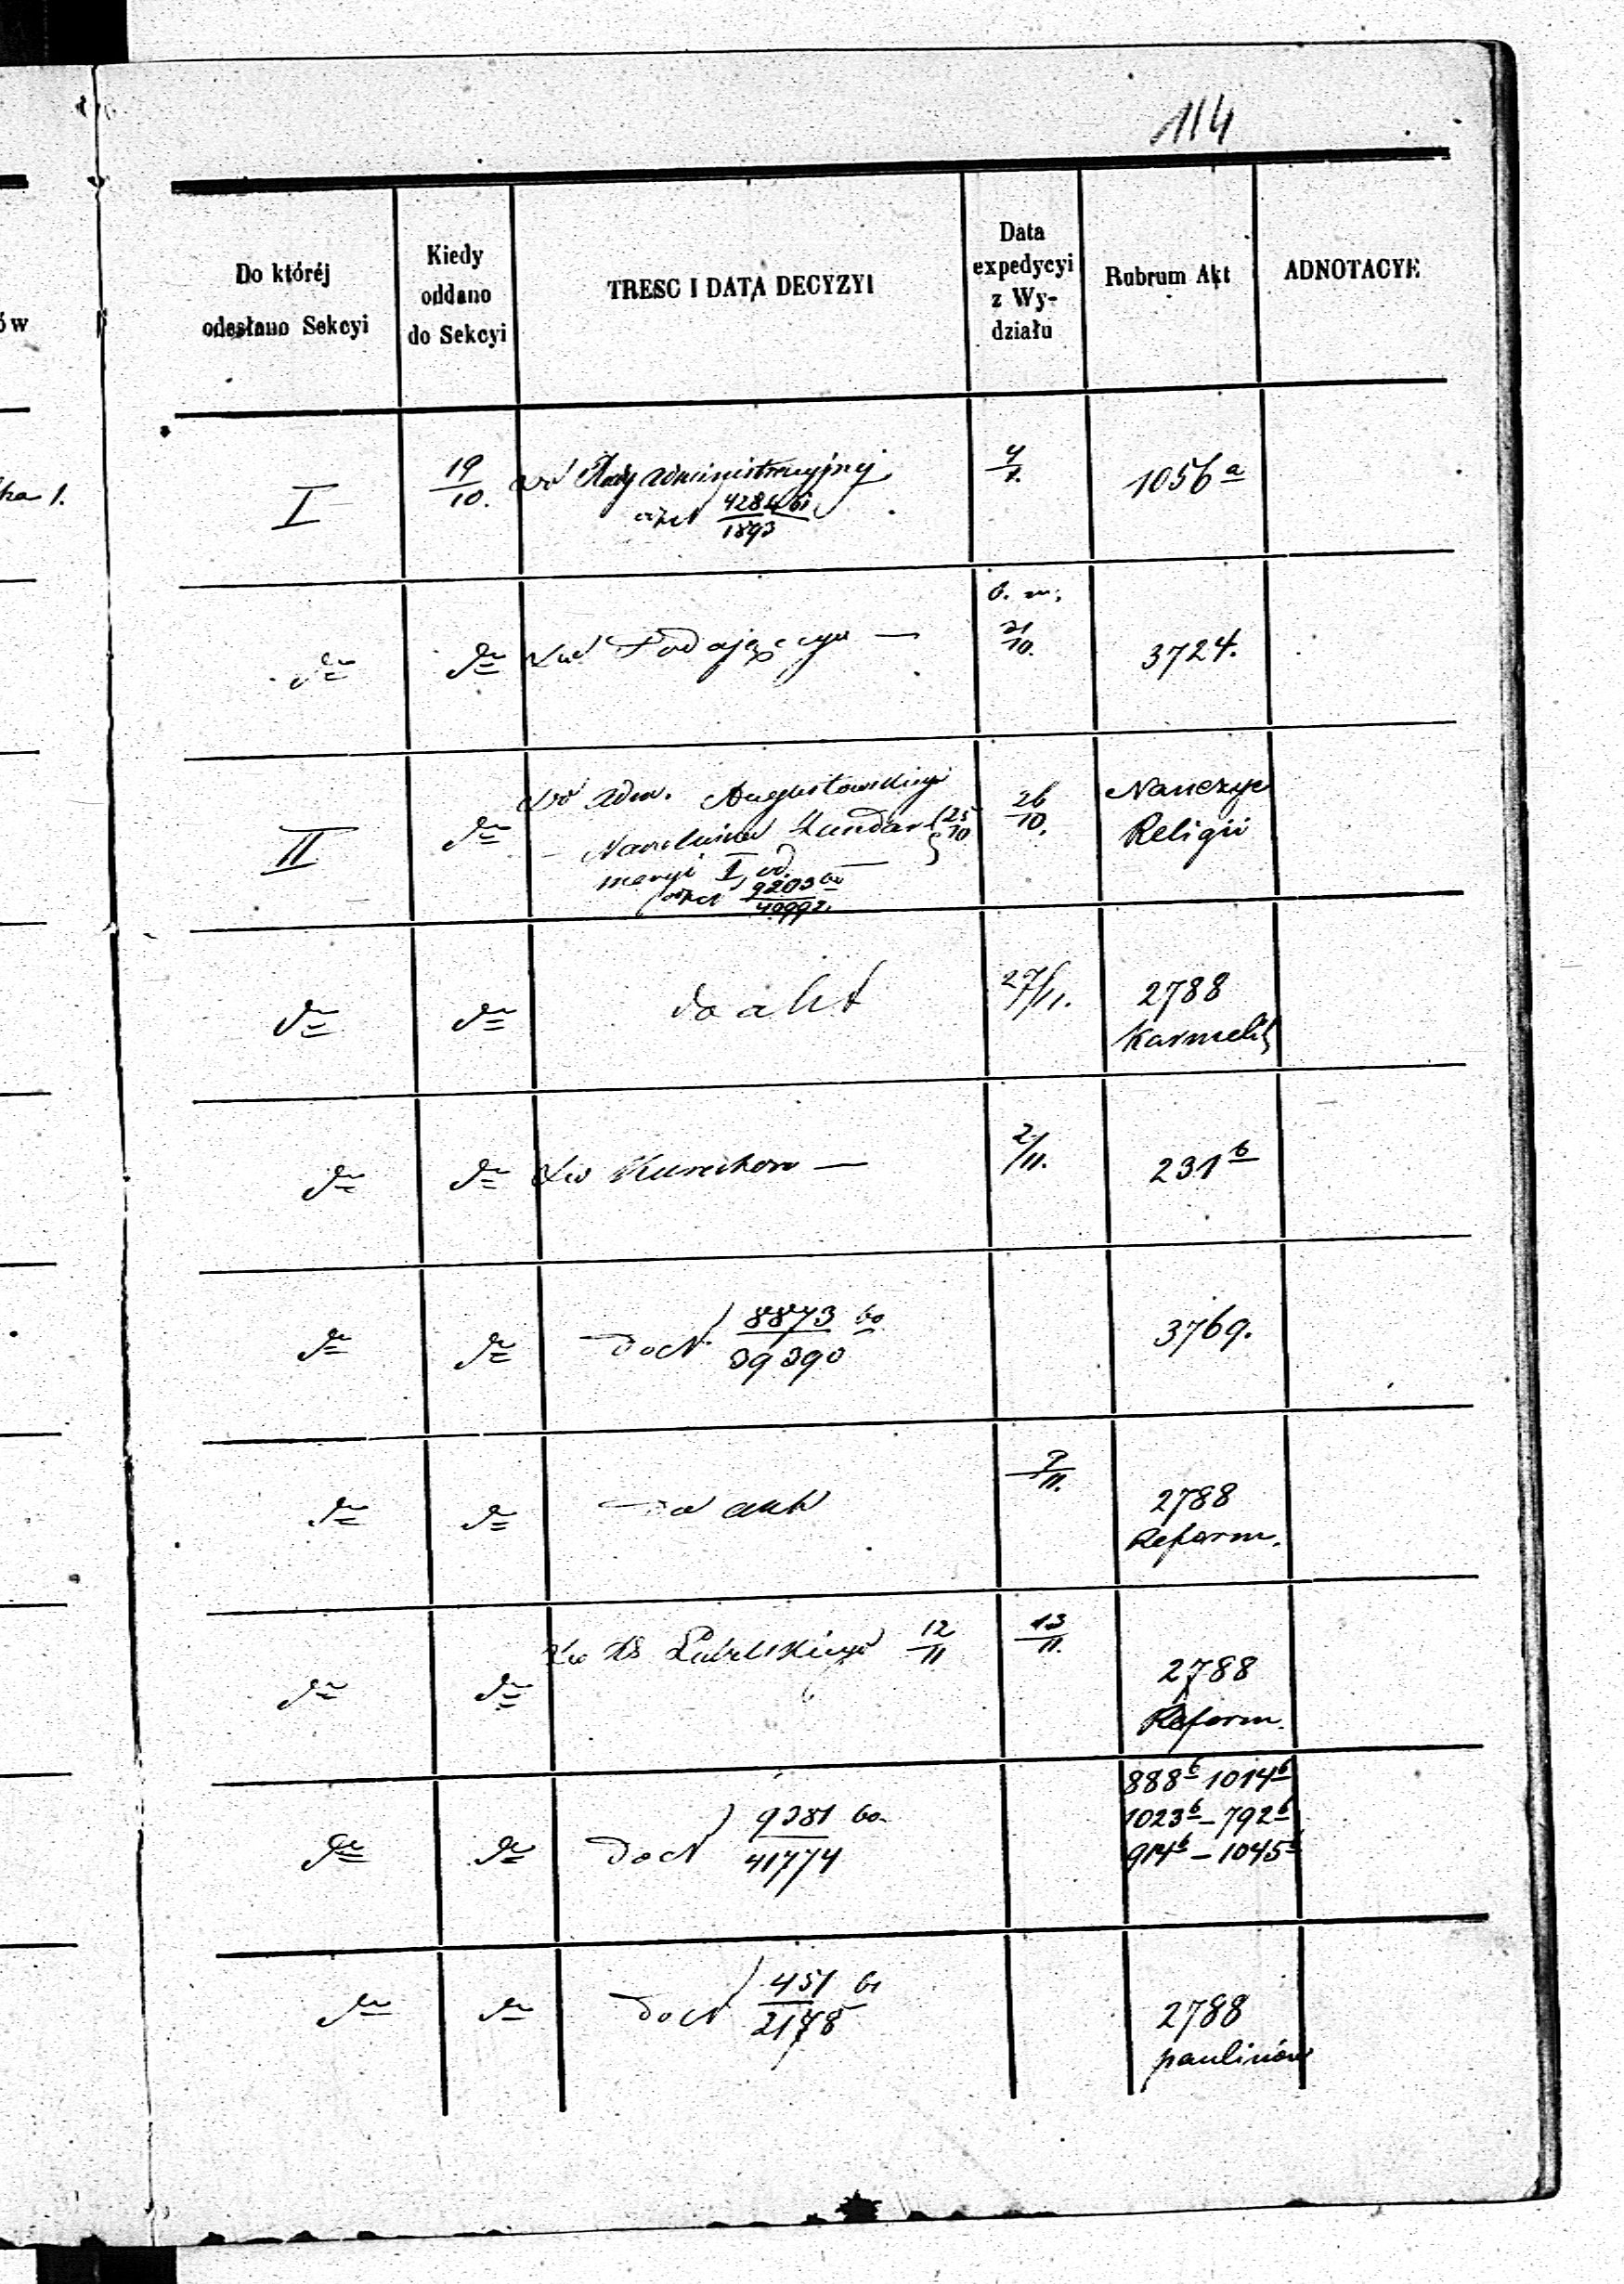 114
Do któréj
odesłano Sekcyi
Kiedy
oddano
do Sekcyi
TRESC I DATA DECYZYI
Data
expedycyi
z Wy-
działu
Rubrum Akt
ADNOTACYE
ów
ka 1.
I
19/10.
Rady administracyjnej
4284 bi
1893
1056 a
do
do
Podającego —
b. m.
21/10.
3724.
II
do
do adm. Augustowskiego
25/10
26/10.
Nauczyc
Religii
9203 bo
40992.
do
do
do akt
27/11.
2788
Karmelit
do
do
2/11.
231 b
do
do
do N 8873 bo
39390
3769.
do
do
do akt
9/11.
2788
Reform.
do
do
Lubelskiego 12/11
13/11.
2788
Reform.
do
do
do N 9381 bo.
41774
888 b 1014 b
1023 b – 792 b
914 b – 1045 b
do
do
do N 451 bi
2178
2788
paulinów